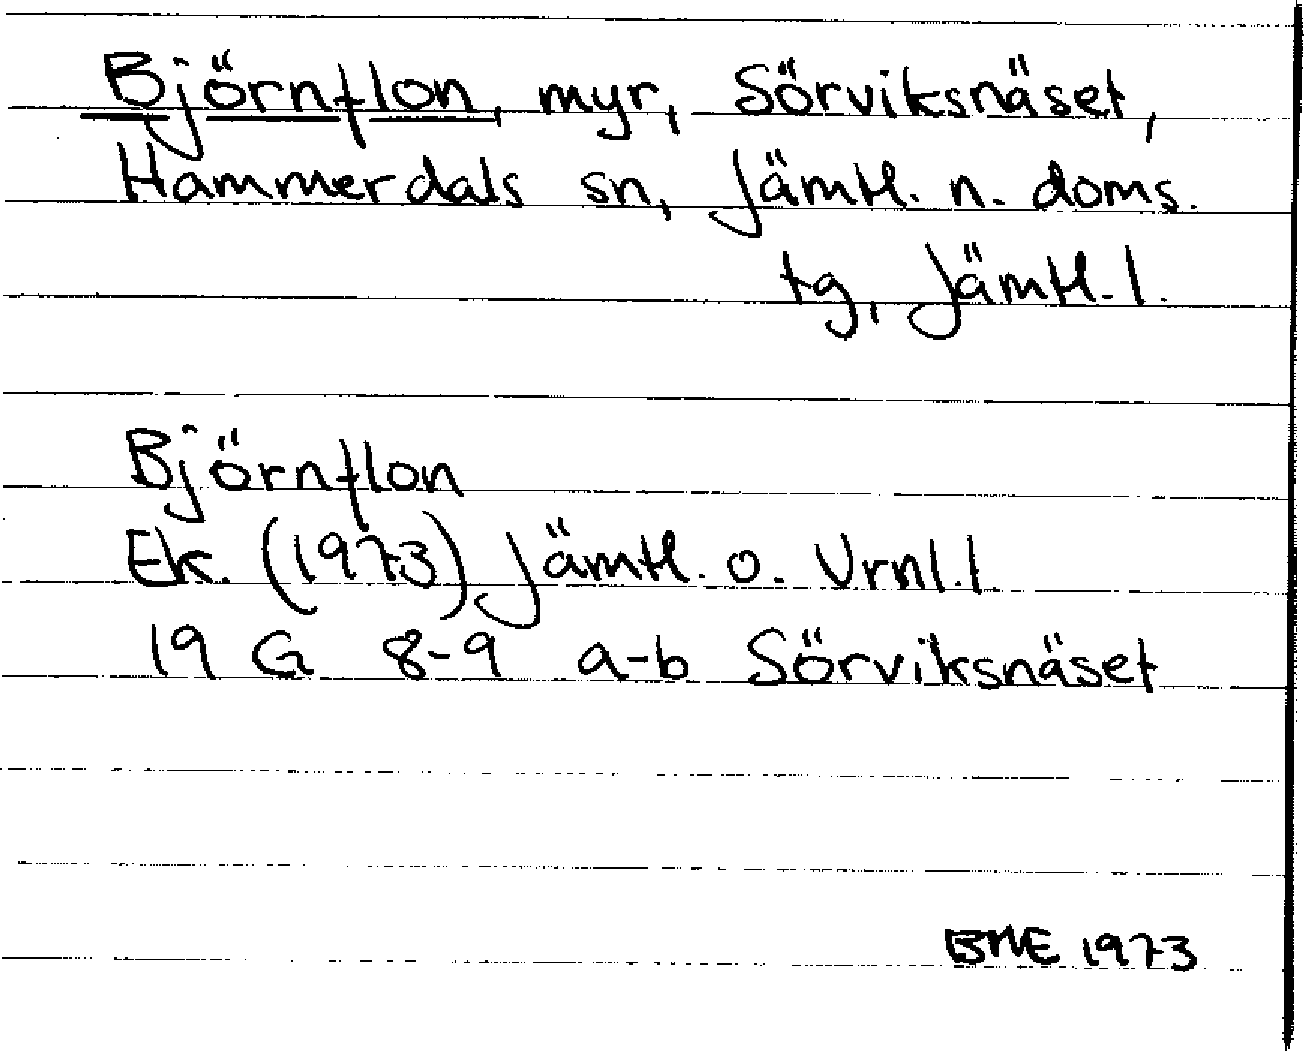 Björnflon, myr, Sörviksnäset,
Hammerdals sn, Jämtl. n. doms.
tg, Jämtl. l.
Björnflon
Ek. (1973) Jämtl. o. Vrnl. l
19 G 8-9 a-b Sörviksnäset
BME 1973